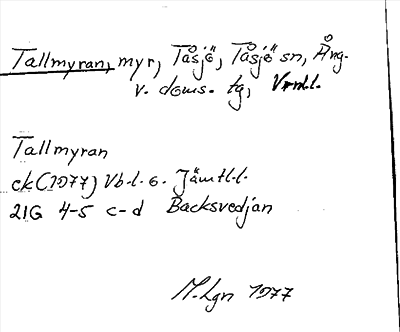 Tallmyran, myr, Tåsjö, Tåsjö sn, Ång.
v. doms. tg, Vrnl.l.
Tallmyran
ek (1977) Vb.l. o. Jämtl.l.
21G 4-5 c-d Backsvedjan
M.Lgn 1977